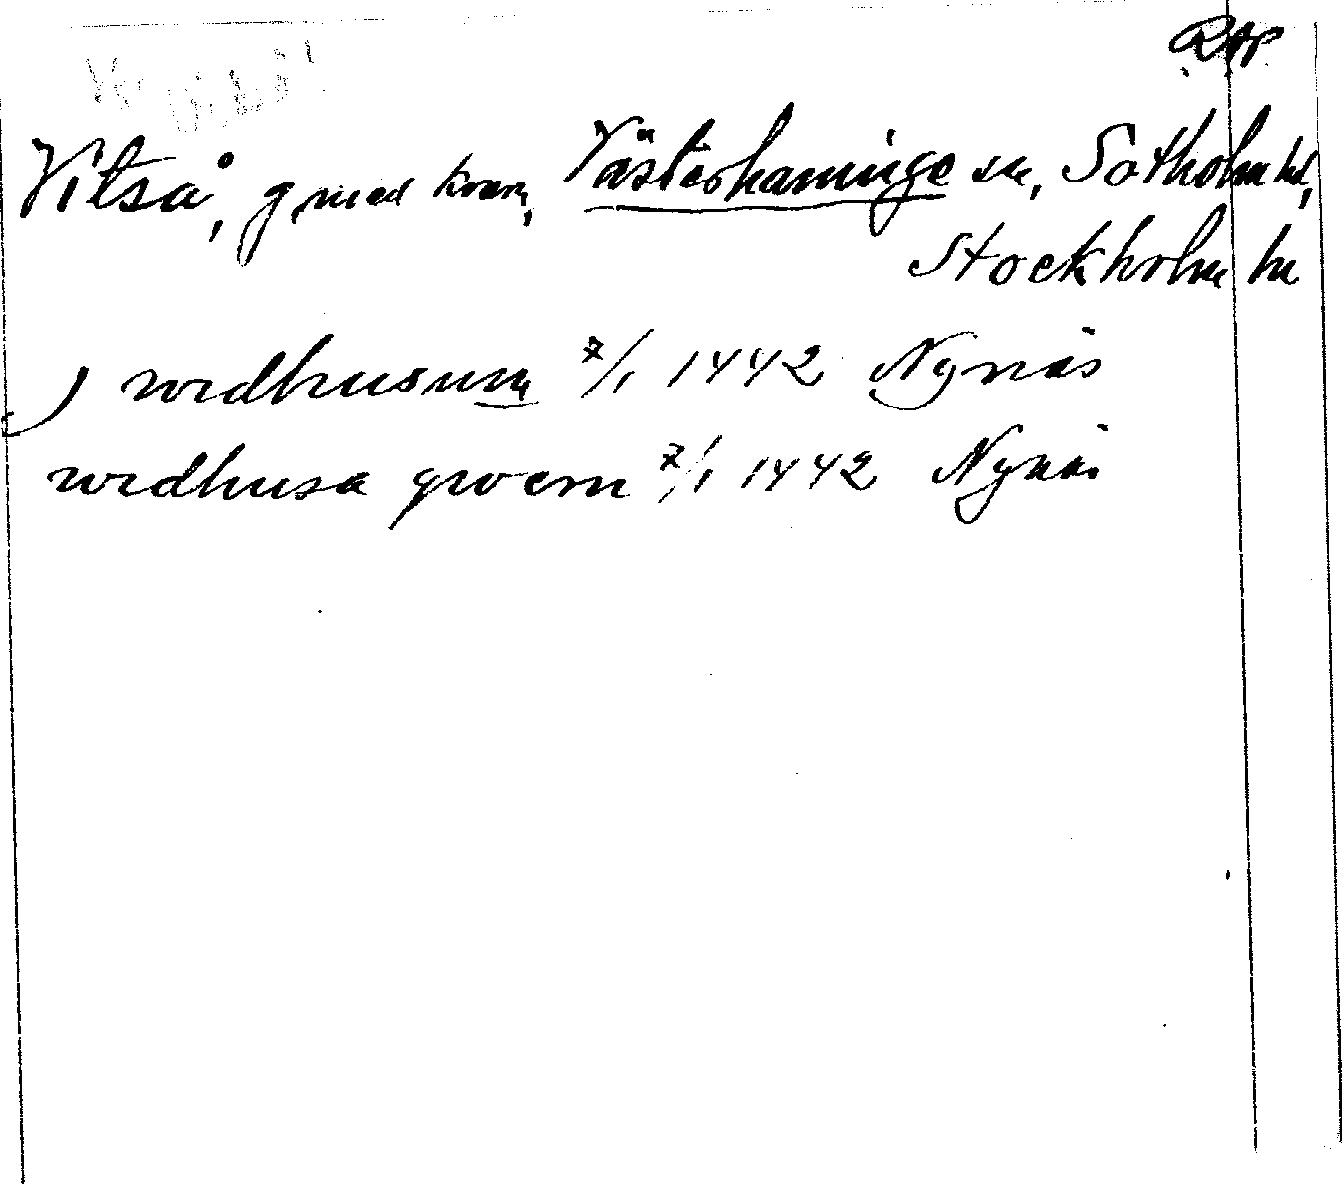 RAP
Vitså, g med kvarn, Västerhaninge sn, Sotholm hd,
Stockholm ln
j widhusum 7/1 1442 Nynäs
widhusa qwern 7/1 1442 Nynäs